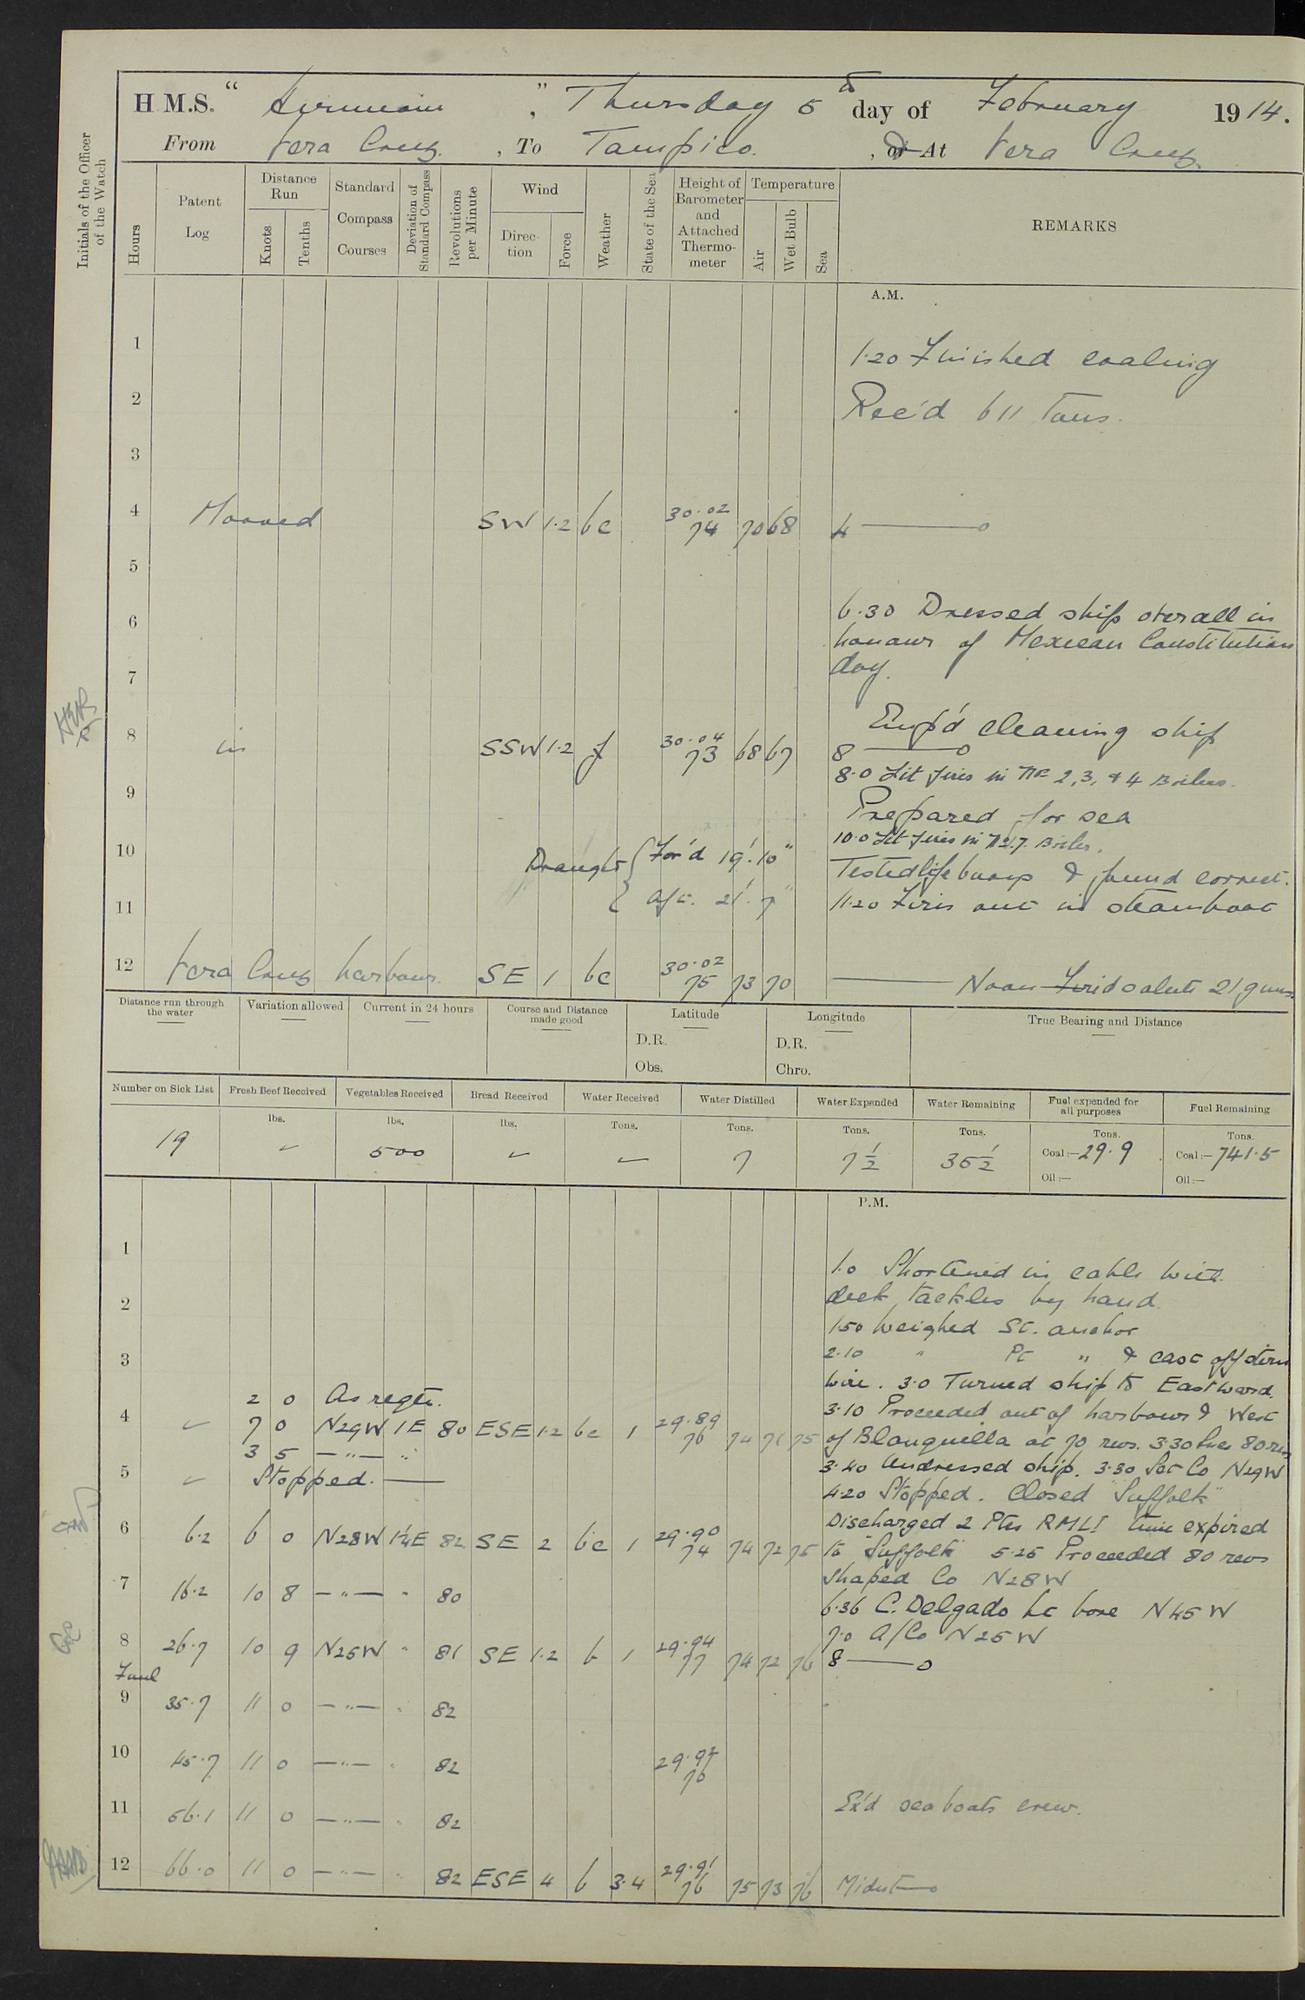 H.M.S. " Hermione ", Thursday 5th day of February 1914.
From Vera Cruz, To Tampico, or At Vera Cruz
Initials of the Officer of the Watch
Hours
Patent Log
Distance Run
Knots Tenths
Standard Compass Courses
Deviation of Standard Compass
Revolutions per Minute
Wind
Direction Force
Weather
State of the Sea
Height of Barometer and Attached Thermometer
Temperature
Air Wet Bulb Sea
REMARKS
A.M.
1
1.20 Finished coaling
2 Rec'd 611 Tons.
3
4 Moored SW 1.2 bc 30.02 74 70 68 4
5
6 6.30 Dressed ship overall in
honour of Mexican Constitution
7 day.
Emp'd cleaning ship
8 in SSW 1.2 f 30.04 73 68 67 8
8.0 Lit fires in Nos 2, 3, & 4 Boilers.
9
Prepared for sea
10 10.0 Lit fires in No 7 Boiler.
Draught { For'd 19'.10" Tested lifebuoys & found correct.
11 Aft. 21'.7" 11.20 Fires out in steamboat
12 Vera Cruz harbour. SE 1 bc 30.02 75 73 70 Noon Fired salute 21 guns
Distance run through the water Variation allowed Current in 24 hours Course and Distance made good Latitude Longitude True Bearing and Distance
D.R. D.R.
Obs. Chro.
Number on Sick List Fresh Beef Received Vegetables Received Bread Received Water Received Water Distilled Water Expended Water Remaining Fuel expended for all purposes Fuel Remaining
lbs. lbs. lbs. Tons. Tons. Tons. Tons. Tons. Tons.
19 ✓ 500 ✓ ✓ 7 7½ 35½ Coal:— 29.9 Coal:— 741.5
Oil:— Oil:—
P.M.
1
1.0 Shortened in cable with
2 deck tackles by hand.
1.50 Weighed St. anchor
3 2.10 " Pt " & cast off stern
wire. 3.0 Turned ship to Eastward.
2 0 As reqte.
3.10 Proceeded out of harbour & West
4 ✓ 7 0 N29W 1E 80 ESE 1.2 bc 1 29.89 76 74 71 75
of Blanquilla at 70 revs. 3.30 Incr 80 revs
3 5 —"— "
3.40 Undressed ship. 3.30 Set Co N29W
5 ✓ Stopped.
4.20 Stopped. Closed "Suffolk"
Discharged 2 Ptes RMLI time expired
6 6.2 6 0 N28W 1¼E 82 SE 2 bc 1 29.90 74 74 72 75
to "Suffolk" 5.25 Proceeded 80 revs
Shaped Co N28W
7 16.2 10 8 —"— " 80
6.36 C. Delgado Lt bore N45W
7.0 A/Co N25W
8 26.7 10 9 N25W " 81 SE 1.2 b 1 29.94 77 74 72 76 8
9 35.7 11 0 —"— " 82
10 45.7 11 0 —"— 82 29.97 76
11 56.1 11 0 —"— " 82 Ex'd sea boats crew.
12 66.0 11 0 —"— " 82 ESE 4 b 3.4 29.91 76 75 73 76 Midnt